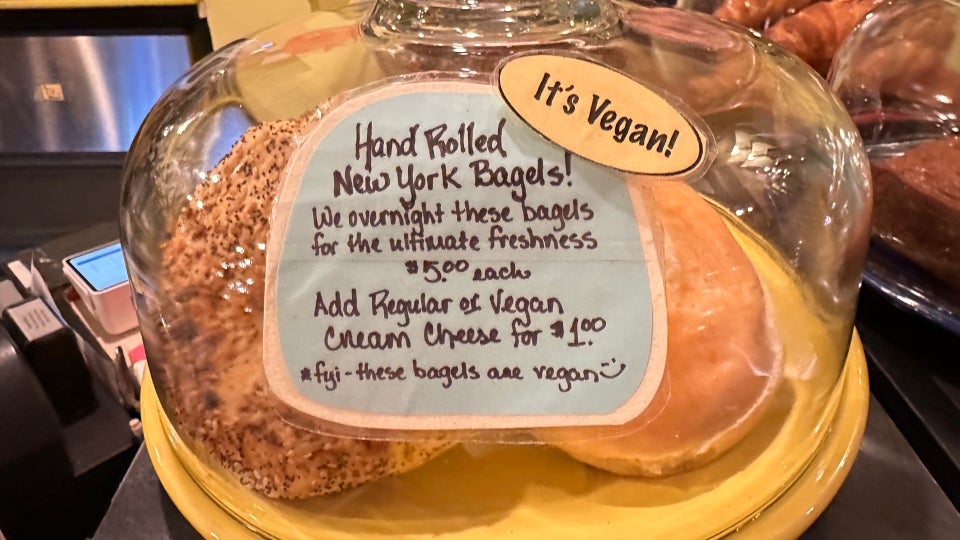 It's Vegan!
Hand Rolled
New York Bagels!
We overnight these bagels
for the ultimate freshness
$5.00 each
Add Regular or Vegan
Cream Cheese for $1.00
*fyi-these bagels are vegan